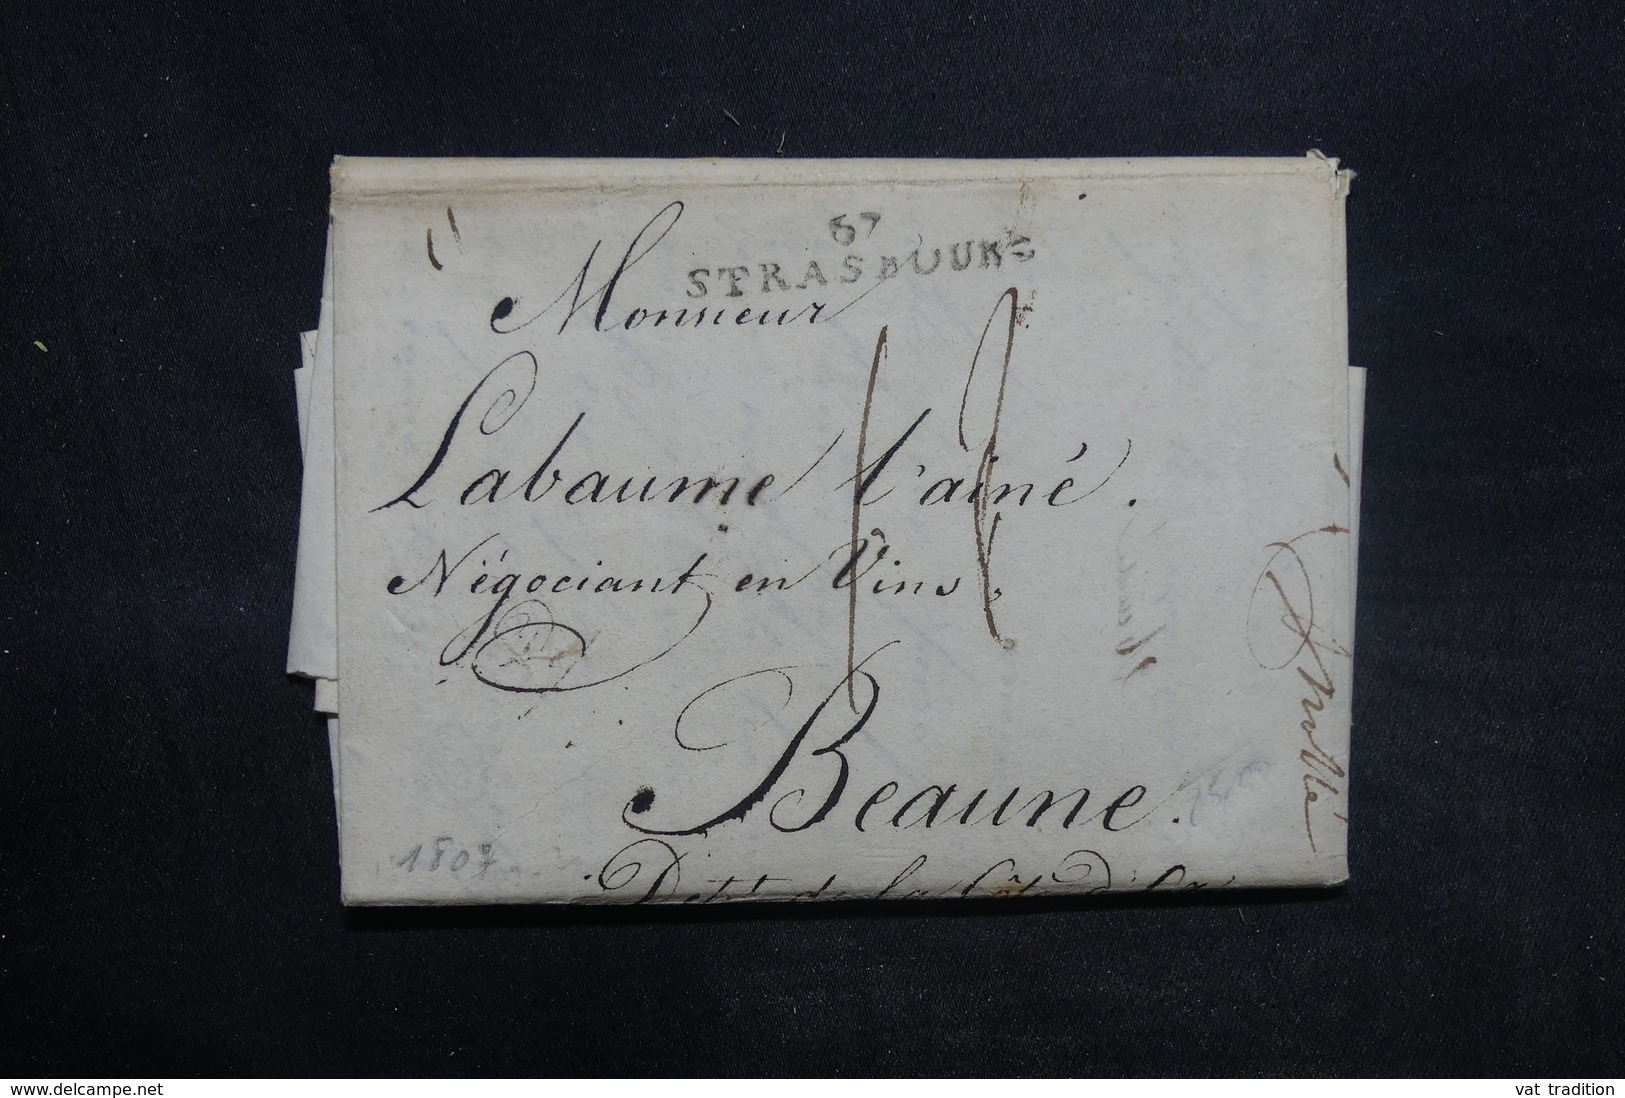 67
STRASBOURG
Monsieur
Labaume l'ainé.
Négociant en Vins,
Beaune.
Dept de la Côte d'Or
1807
www.delcampe.net
vat tradition